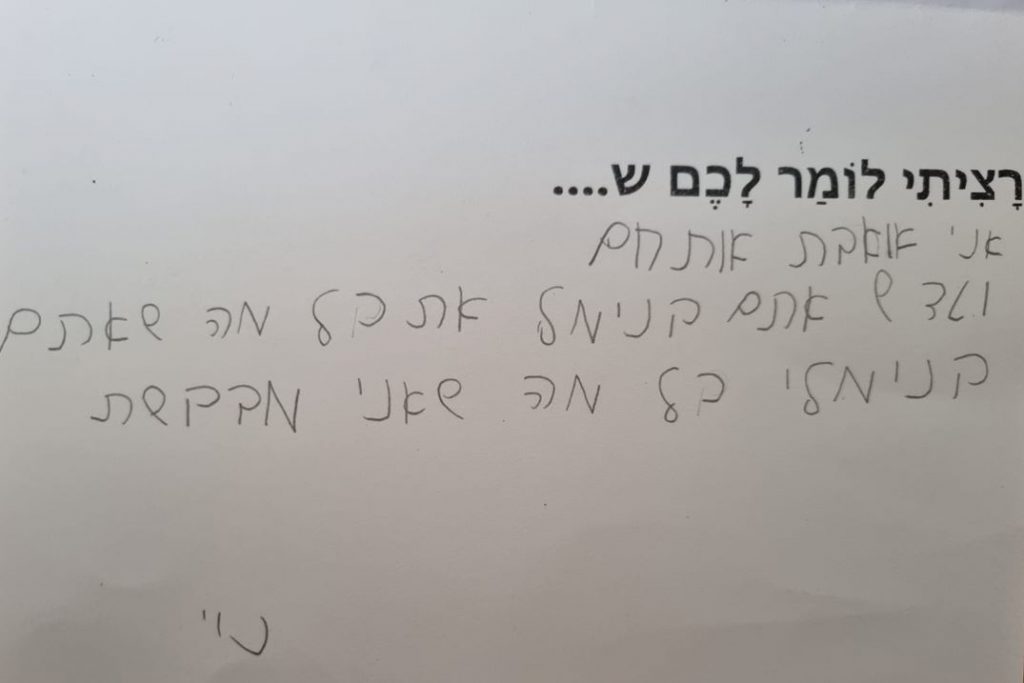 רָצִיתִי לוֹמַר לָכֶם ש....
אני אואבת אותחם
ש אתם קנימל את כל מה שאתם
קנימלי כל מה שאני מבקשת
נוי